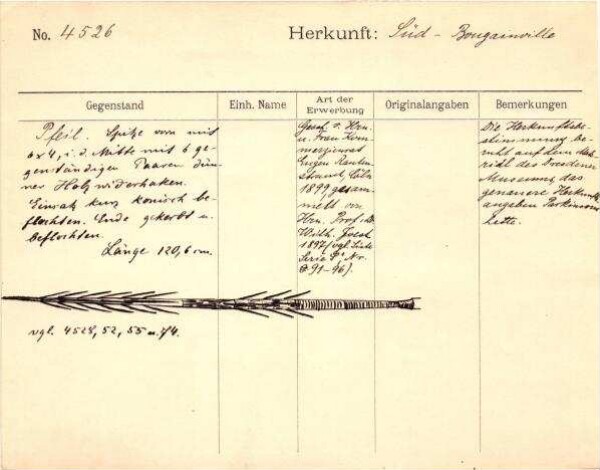 No. 4526
Herkunft: Süd-Bougainville
Gegenstand
Einh. Name
Art der Erwerbung
Originalangaben
Bemerkungen
Pfeil. Spitze vorn mit
6x4, i. d. Mitte mit 6 ge-
genständigen Paaren dün-
ner Holzwiderhaken.
Einsatz kurz konisch be-
flochten. Ende gekerbt u.
beflochten.
Länge 120,6 cm.
Gesch. v. Hrn.
u. Frau Kom-
merzienrat
Eugen Rauten-
strauch, Cöln
1899, gesam-
melt von
Hrn. Prof. Dr.
Wilh. Joest
1897 (vgl. Liste
Serie Nr.
91-96).
Die Herkunftsbe-
stimmung be-
ruht auf dem
des Dresdener
Museums, das
genauere Herkunfts-
angaben Parkinsons
hatte.
vgl. 4528, 52, 55 u. 74.